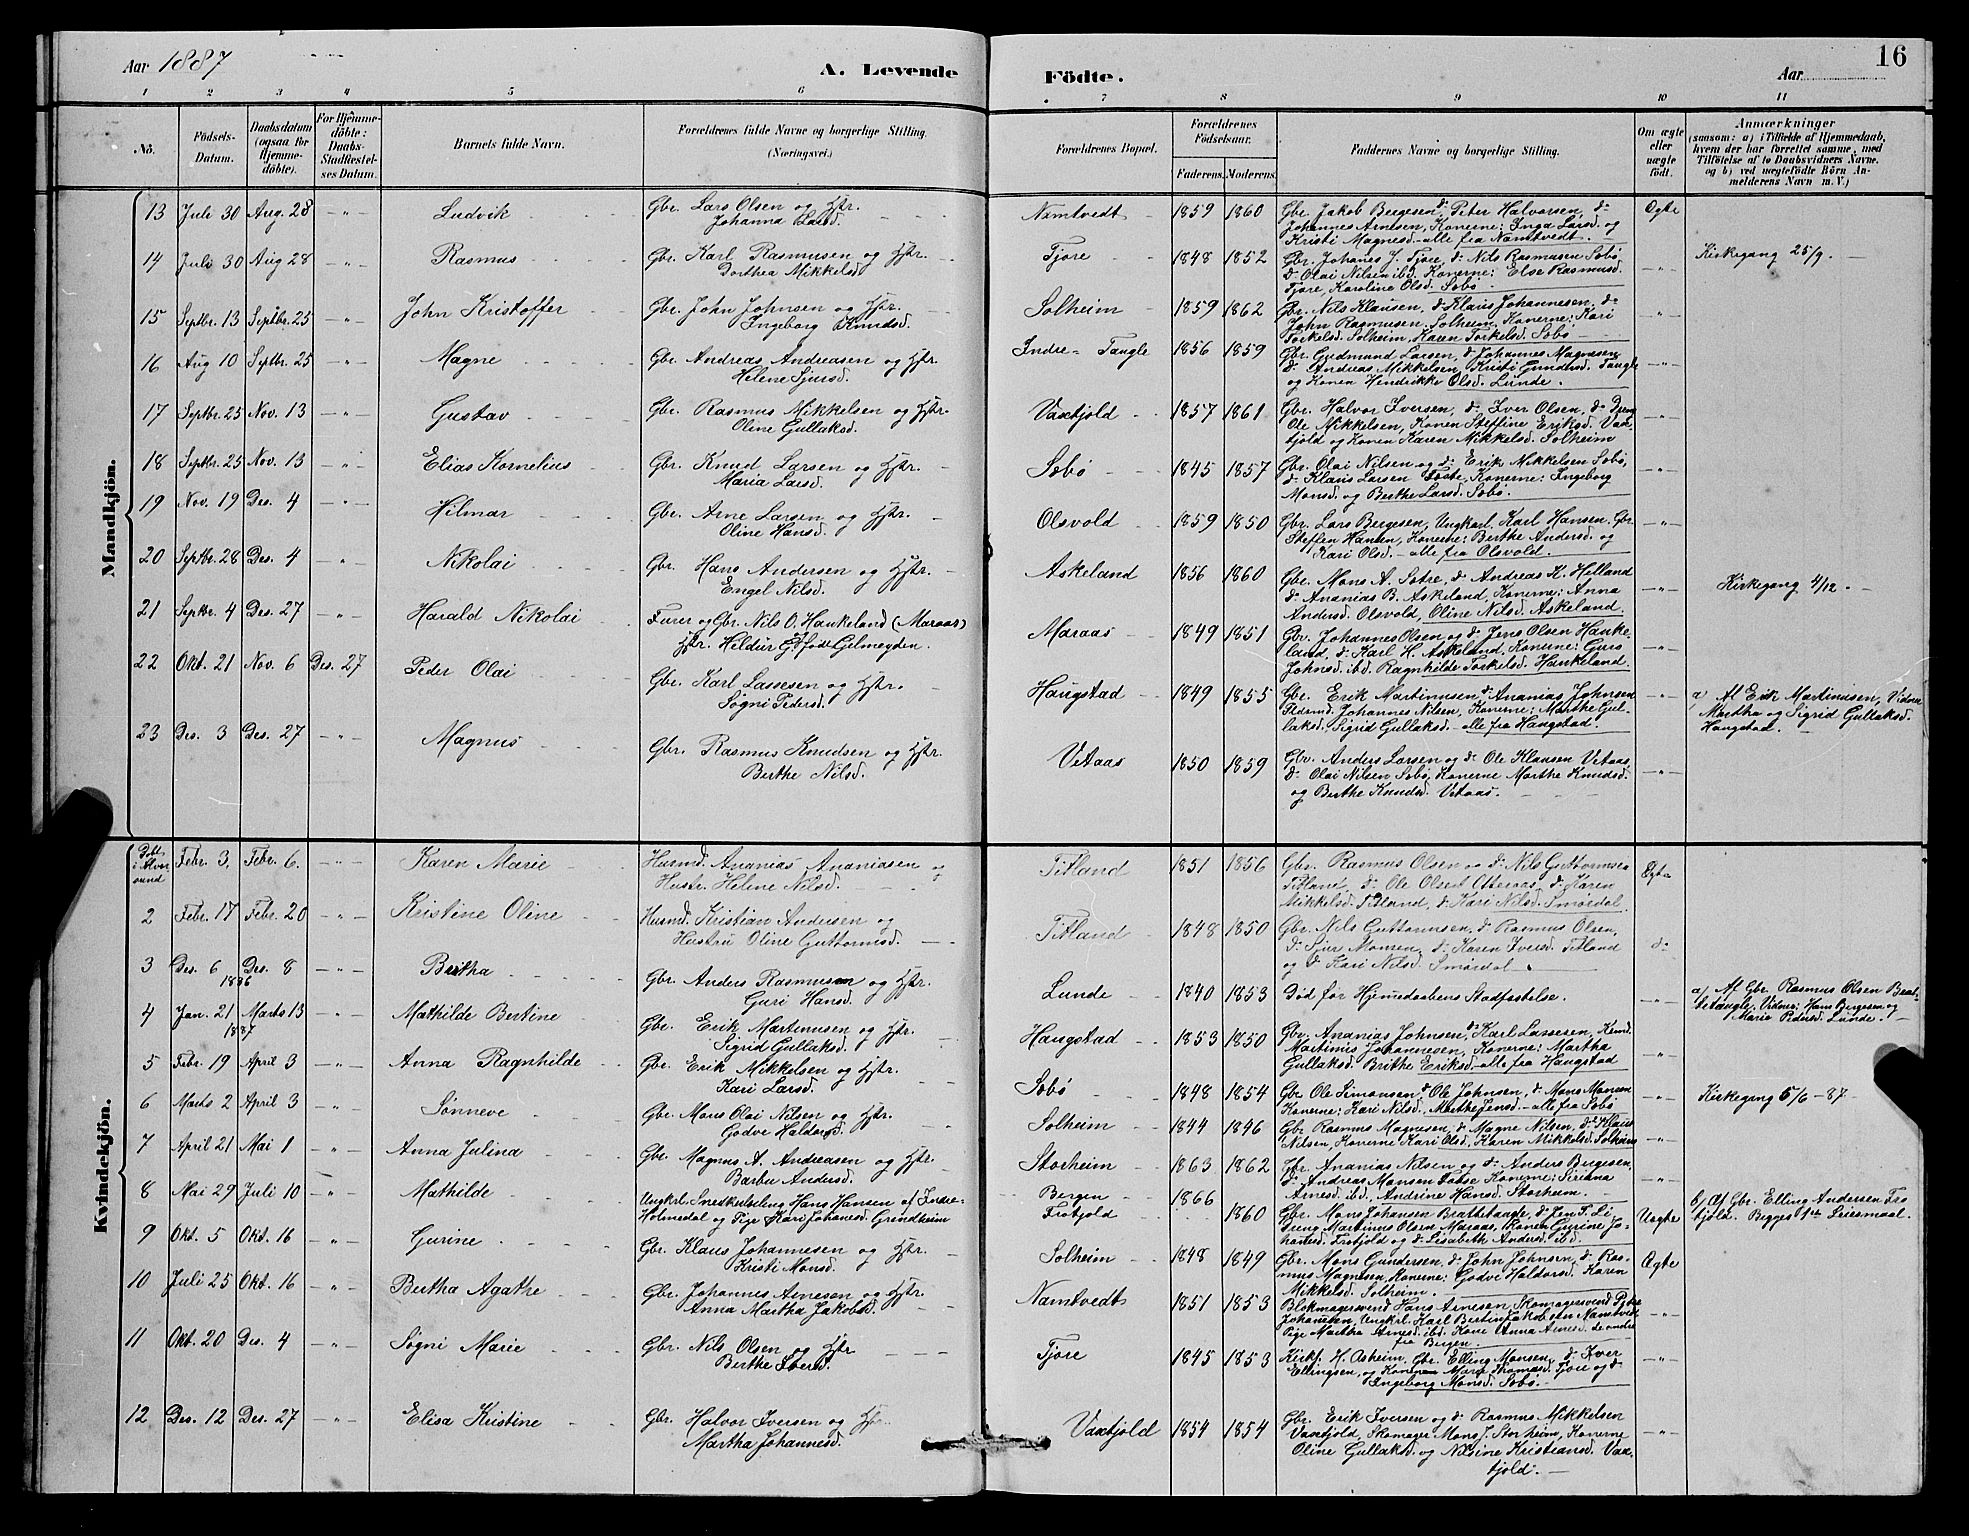 Aar 1887
A. Levende Födte.
Aar
16
1 2 3 4 5 6 7 8 9 10 11
No.
Födsels-Datum.
Daabsdatum (ogsaa for Hjemmedöbte).
For Hjemmedöbte: Daabs-Stadfæstelses Datum.
Barnets fulde Navn.
Forældrenes fulde Navne og borgerlige Stilling. (Næringsvei.)
Forældrenes Bopæl.
Forældrenes Födselsaar. Faderens. Moderens.
Faddernes Navne og borgerlige Stilling.
Om ægte eller uægte födt.
Anmærkninger
(saasom: a) i Tilfælde af Hjemmedaab, hvem der har forrettet samme, med Tilföielse af to Daabsvidners Navne. og b) ved uægtefödte Börn Anmelderens Navn m. V.)
Mandkjön.
13 Juli 30 Aug. 28 -"- Ludvik Gbr. Lars Olsen og Hstr. Johanna Larsd. Namtvedt 1859 1860 Gbr. Jakob Bergesen, do Peter Halvorsen, do Johannes Arnesen, Konerne: Inga Larsd. og Kristi Magnesd. - alle fra Namtvedt. Ægte
14 Juli 30 Aug 28 -"- Rasmus Gbr. Karl Rasmusen og Hstr. Dorthea Mikkelsd. Tjore 1848 1852 Gbr. Johanes J. Tjore, do Nils Rasmusen Sæbø, do Olai Nilsen ibd. Konerne: Else Rasmusd. Tjore, Karoline Olsd. Sæbø -"- Kirkegang 25/9.
15 Septbr. 13 Septbr. 25 -"- John Kristoffer Gbr. John Johnsen og Hstr. Ingeborg Knudsd. Solheim 1859 1862 Gbr. Nils Klausen, do Klaus Johannesen, do John Rasmusen Solheim, Konerne: Kari Torkelsd. Solheim, Karen Torkelsd. Sæbø -"-
16 Aug 10 Septbr. 25 -"- Magne Gbr. Andreas Andreasen og Hstr. Helene Sjursd. Indre-Tangle 1856 1859 Gbr. Gudmund Larsen, do Johannes Magnesen, do Andreas Mikkelsen, Kristi Gundersd. Tangle og Konen Hendrikke Olsd. Lunde. -"-
17 Septbr. 25 Nov. 13 -"- Gustav Gbr. Rasmus Mikkelsen og Hstr. Oline Gullaksd. Vaxtjold 1857 1861 Gbr. Halvor Iversen, do Iver Olsen, do Dreng Ole Mikkelsen, Konen Steffine Eriksd. Vaxtjold og Konen Karen Mikkelsd. Solheim -"-
18 Septbr. 25 Nov. 13 -"- Elias Kornelius Gbr. Knud Larsen og Hstr. Maria Larsd. Sæbø 1845 1857 Gbr. Olai Nilsen og do Erik Mikkelsen Sæbø, do Klaus Larsen Toste, Konerne: Ingeborg Monsd. og Berthe Larsd. Sæbø. -"-
19 Nov. 19 Des. 4 -"- Hilmar Gbr. Arne Larsen og Hstr. Oline Hansd. Olsvold 1859 1850 Gbr. Lars Bergesen, Ungkarl. Karl Hansen, Gbr. Steffen Hansen, Konerne: Berthe Andersd. og Kari Olsd. - alle fra Olsvold. -"-
20 Septbr. 28 Des. 4 -"- Nikolai Gbr. Hans Andersen og Hstr. Engel Nilsd. Askeland 1856 1860 Gbr. Mons A. Sætre, do Andreas K. Helland do Ananias B. Askeland, Konerne: Anna Andersd. Olsvold, Oline Nilsd. Askeland. -"- Kirkegang 4/12.
21 Septbr. 4 Des. 27 -"- Harald Nikolai Furer og Gbr. Nils O. Haukeland (Maraas) Hstr. Heldur G. född Gelmeyden. Maraas 1849 1851 Gbr. Johannes Olsen og do Jens Olsen Haukeland, do Karl H. Askeland, Konerne: Guro Johnsd. ibd. Ragnhilde Torkelsd. Haukeland. -"-
22 Okt. 21 Nov. 6 Des. 27 Peder Olai Gbr. Karl Lassesen og Hstr. Sogni Pedersd. Haugstad 1849 1855 Gbr. Erik Martinusen, do Ananias Johnsen Johannes Nilsen, Konerne: Marthe Gullaksd., Sigrid Gullaksd. - alle fra Haugstad. -"- a) Af Erik Martinusen, Vidner Martha og Sigrid Gullaksd. Haugstad.
23 Des. 3 Des. 27 -"- Magnus Gbr. Rasmus Knudsen og Hstr. Berthe Nilsd. Vetaas 1850 1859 Gbr. Anders Larsen og do Ole Klausen Vetaas, do Olai Nilsen Sæbø, Konerne Marthe Knudsd. og Berthe Knudsd. Vetaas. -"-
Kvindekjön.
Döbt i Alversund Febr. 3. Febr. 6. -"- Karen Marie Husmd. Ananias Ananiasen og Hustr. Helene Nilsd. Titland 1851 1856 Gbr. Rasmus Olsen og do Nils Guttormsen Titland, do Ole Olsen Otteraas, do Karen Mikkelsd. Titland, do Kari Nilsd. Smørdal. Ægte
2 Febr. 17 Febr. 20 -"- Kristine Oline Husmd. Kristian Andersen og Hustru Oline Guttormsd. Titland 1848 1850 Gbr. Nils Guttormsen, do Rasmus Olsen, do Sjur Monsen, do Karen Iversd. Titland og do Kari Nilsd. Smørdal do
3 Des. 6 1886 Des. 8 -"- Bertha Gbr. Anders Rasmusen og Hstr. Guri Hansd. Lunde 1840 1853 Død før Hjemmedaabens Stadfæstelse. -"- a) Af Gbr. Rasmus Olsen Beattetangle, Vidner: Hans Bergesen og Marie Pedersd. Lunde.
4 Jan. 21 1887 Marts 13 -"- Mathilde Bertine Gbr. Erik Martinusen og Hstr. Sigrid Gullaksd. Haugstad 1853 1850 Gbr. Ananias Johnsen, do Karl Lassesen, Martinus Johannesen, Konerne: Martha Gullaksd. Brithe Eriksd. - alle fra Haugstad -"-
5 Febr. 19 April 3 -"- Anna Ragnhilde Gbr. Erik Mikkelsen og Hstr. Kari Larsd. Sæbø 1848 1854 Gbr. Ole Simonsen, do Ole Johnsen, do Mons Monsen Konerne: Kari Nilsd., Marthe Jensd. - alle fra Sæbø -"- Kirkegang 5/6 - 87
6 Marts 2 April 3 -"- Sønneve Gbr. Mons Olai Nilsen og Hstr. Godve Haldorsd. Solheim 1844 1846 Gbr. Rasmus Magnesen, do Magne Nilsen, do Klaus Nilsen, Konerne Kari Olsd., Karen Mikkelsd. Solheim -"-
7 April 21 Mai 1 -"- Anna Julina Gbr. Magnus A. Andreasen og Hstr. Barbru Andersd. Storheim 1863 1862 Gbr. Ananias Nilsen og do Anders Bergesen, do Andreas Monsen Konerne: Siriana Arnesd. ibd. Andrine Hansd. Storheim. -"-
8 Mai 29 Juli 10 -"- Mathilde Ungkrl. Snedkerlærling Hans Hansen af Indre-Holmedal og Pige Kari Johanesd. Grindheim Bergen Frotjold 1866 1860 Gbr. Mons Johansen Beattetangle, do Jens T. Li Dreng Martinus Olsen Maraas, Konen Gurine Johanesd. Frotjold og do Lisabeth Andersd. ibd. Uægte b) Af Gbr. Elling Andersen Frotjold. Begges 1ste Leiermaal.
9 Okt. 5 Okt. 16 -"- Gurine Gbr. Klaus Johannesen og Hstr. Kristi Monsd. Solheim 1848 1849 Gbr. Mons Gundersen, do John Johnsen, do Rasmus Magnesen, Konerne: Godve Haldorsd. Karen Mikkelsd. Solheim. Ægte
10 Juli 25 Okt. 16 -"- Bertha Agathe Gbr. Johannes Arnesen og Hstr. Anna Martha Jakobsd. Namtvedt 1851 1853 Blokmagersvend Hans Arnesen, Skomagersvend Peder Johansen, Ungkrl. Karl Bertin Jakobsen Namtvedt Pige Martha Arnesd. ibd. Kone Anna Arnesd. de andre fra Bergen. -"-
11 Okt. 20 Des. 4 -"- Sogni Marie Gbr. Nils Olsen og Hstr Berthe Iversd. Tjore 1845 1853 Kirks. H. Asheim, Gbr. Elling Monsen, do Iver Ellingsen, og Konerne Marie Thomasd. Tjore og do Ingeborg Monsd. Sæbø. -"-
12 Des. 12 Des. 27 -"- Elisa Kristine Gbr. Halvor Iversen og Hstr. Martha Johannesd. Vaxtjold 1854 1854 Gbr. Erik Iversen og do Rasmus Mikkelsen Vaxtjold, Skomager Mons J. Storheim, Konerne Oline Gullaksd. og Nilsine Kristiansd. Vaxtjold. -"-